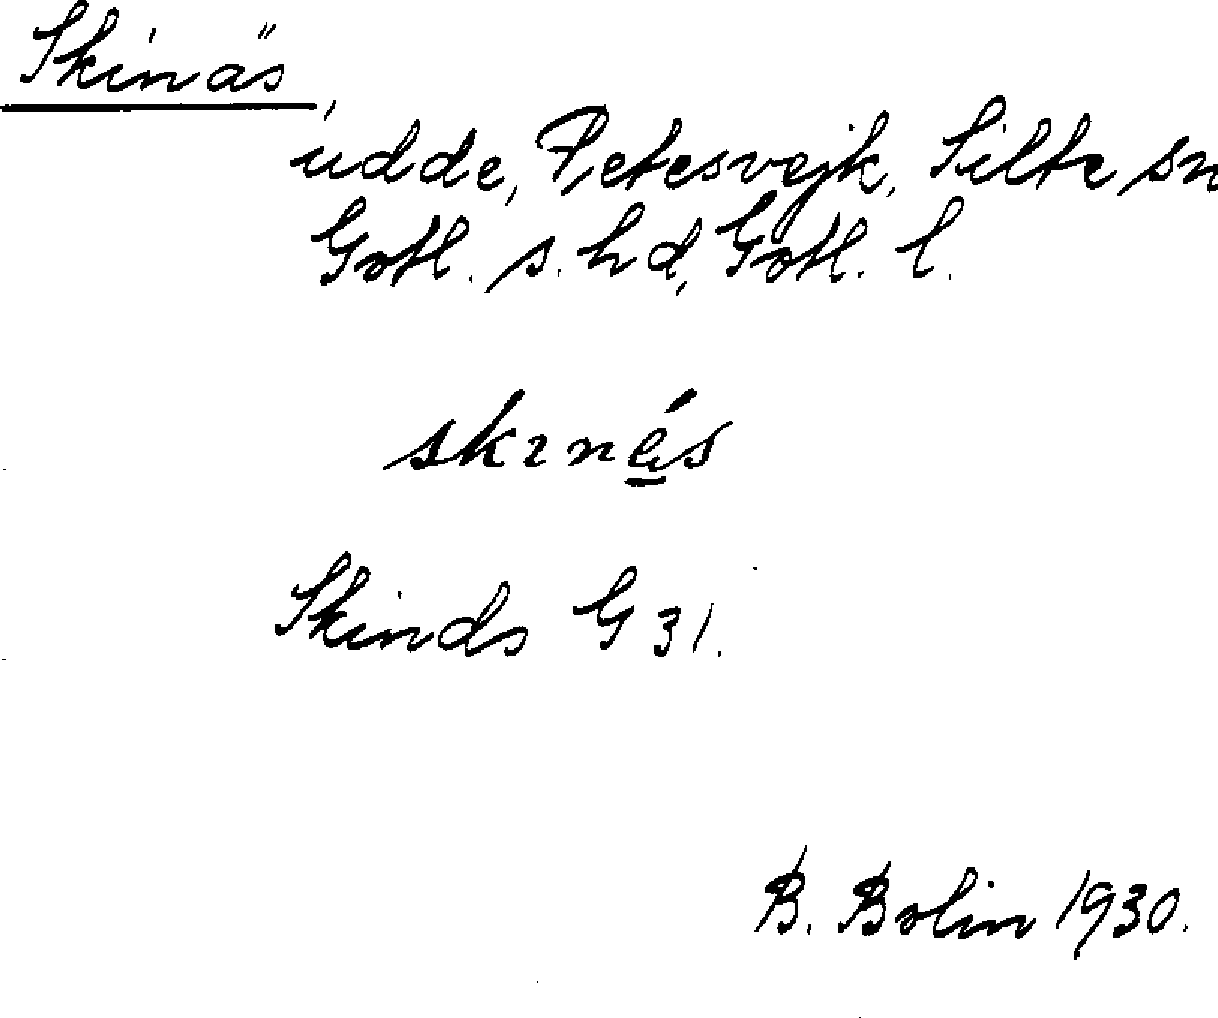 Skinäs,
udde, Petesvejk, Silte sn
Gotl. s. hd, Gotl. l.
skɪnés
Skinds G 31.
B. Bolin 1930.